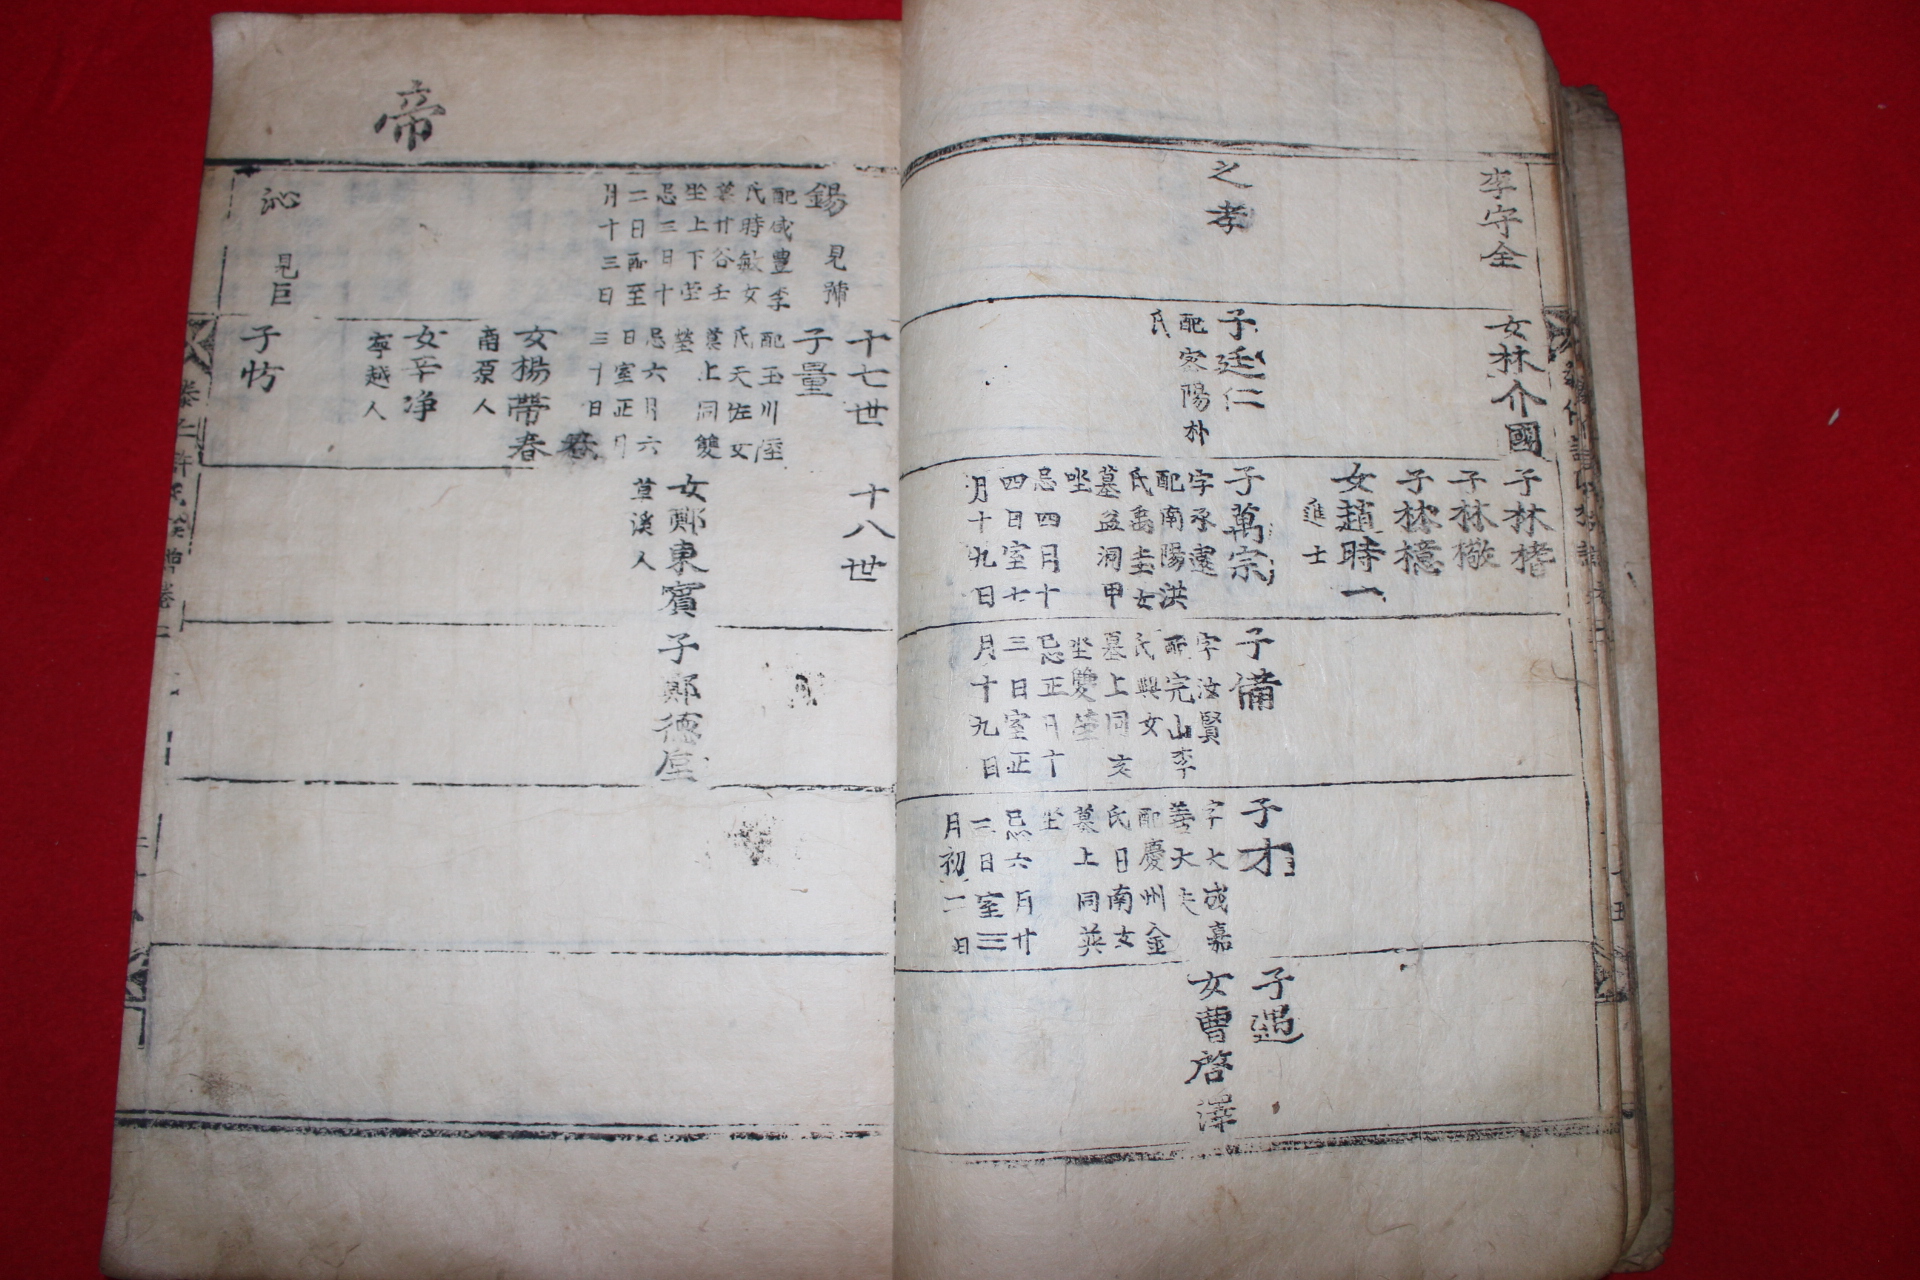 李守全
之孝
女林介國
子廷仁
配密陽朴
氏
子林楮
子林檄
子林檍
女趙時一
進士
子萬宗
字承
配南陽洪
氏禹圭女
墓盆洞甲
坐
忌四月十
四日室七
月十九日
子備
字汝賢
配完山李
氏興女
墓上同亥
坐雙塋
忌正月十
三日室正
月十九日
子才
字大成嘉
善大夫
配慶州金
氏日南女
墓上同英
坐
忌六月廿
三日室三
月初二日
子遇
女曹啓澤
帝
錫
見
配咸豊李
氏時敏女
墓廿谷壬
坐上下塋
忌三日十
二日配至
月十三日
沁
見巨
十七世
子量
配玉川
氏天佐女
墓上同雙
塋
忌六月六
日室正月
三十日
女楊帶春
南原人
女辛净
寧越人
子忇
十八世
女鄭東賓
草溪人
子鄭德